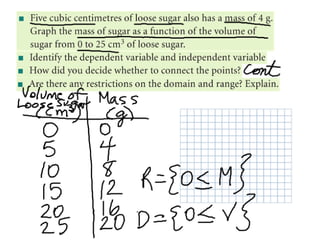 ■ Five cubic centimetres of loose sugar also has a mass of 4 g.
Graph the mass of sugar as a function of the volume of
sugar from 0 to 25 cm³ of loose sugar.
■ Identify the dependent variable and independent variable
■ How did you decide whether to connect the points? Cont
■ Are there any restrictions on the domain and range? Explain.
Volume of Mass
Loose sugar (g)
(cm³)
0 0
5 4
10 8
15 12
20 16
25 20
R={0≤M}
D={0≤V}